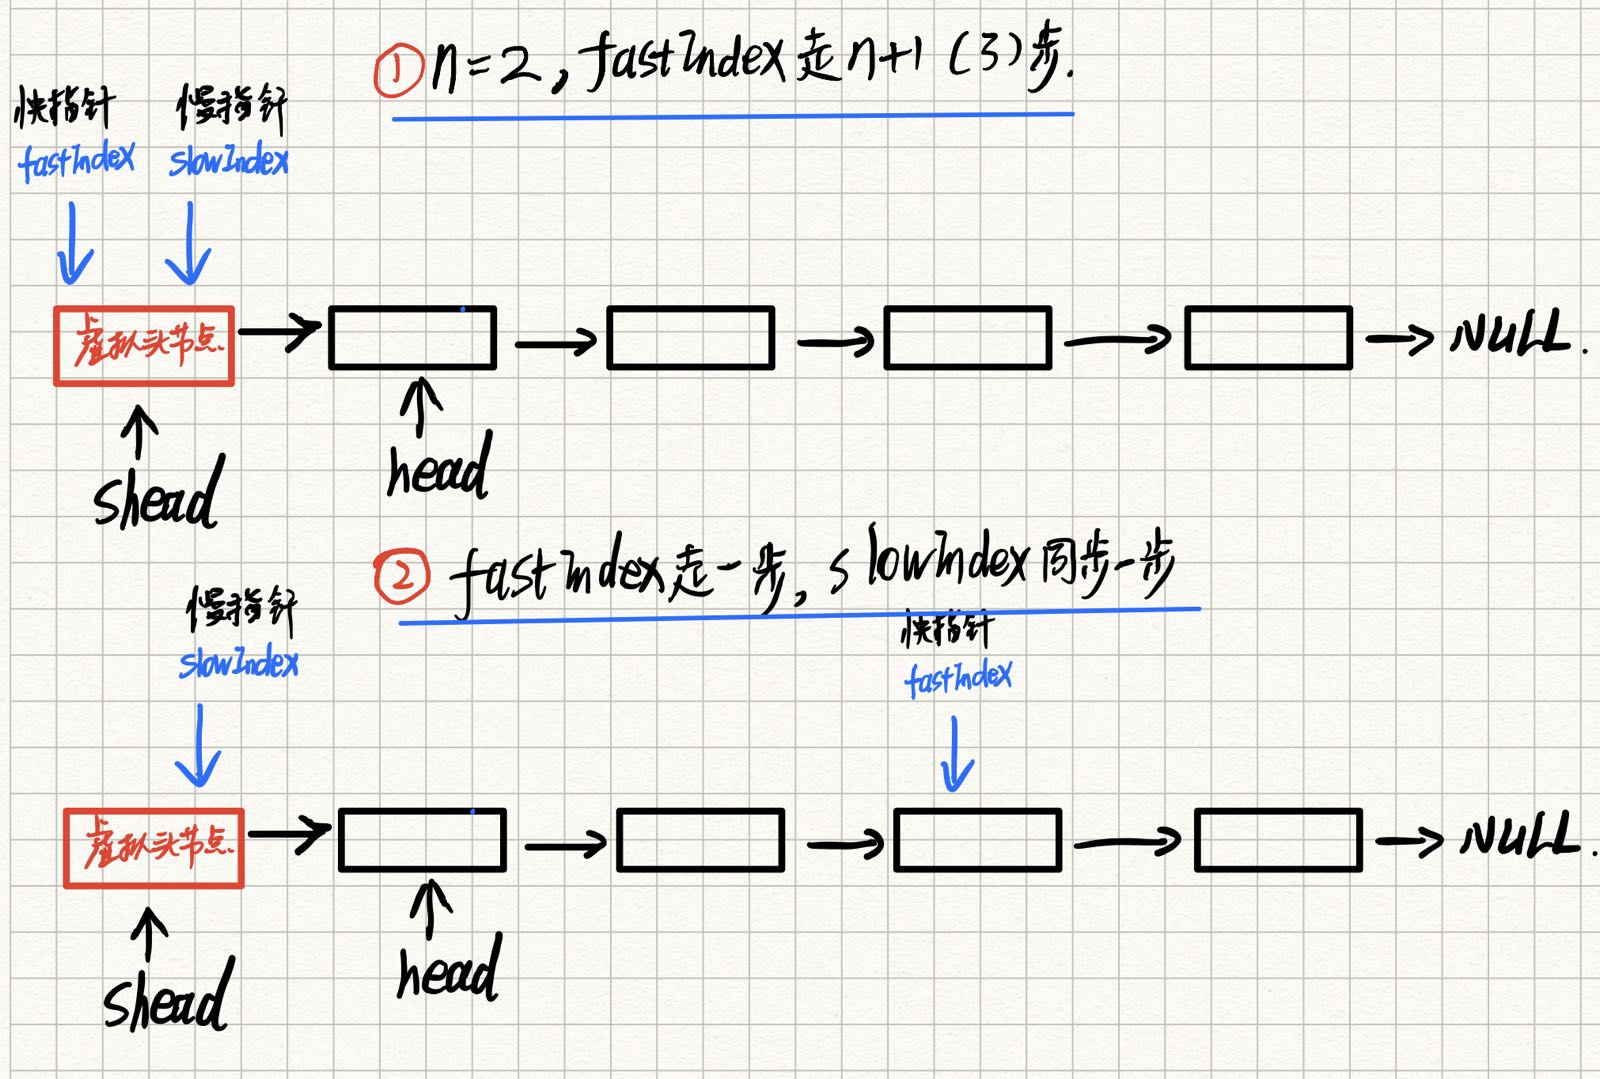 ① n=2,fastIndex走n+1(3)步.
快指针 慢指针
fastIndex slowIndex
虚拟头节点 NULL.
head
shead
② fastIndex走一步,slowIndex同步一步
慢指针 快指针
slowIndex fastIndex
虚拟头节点 NULL.
head
shead